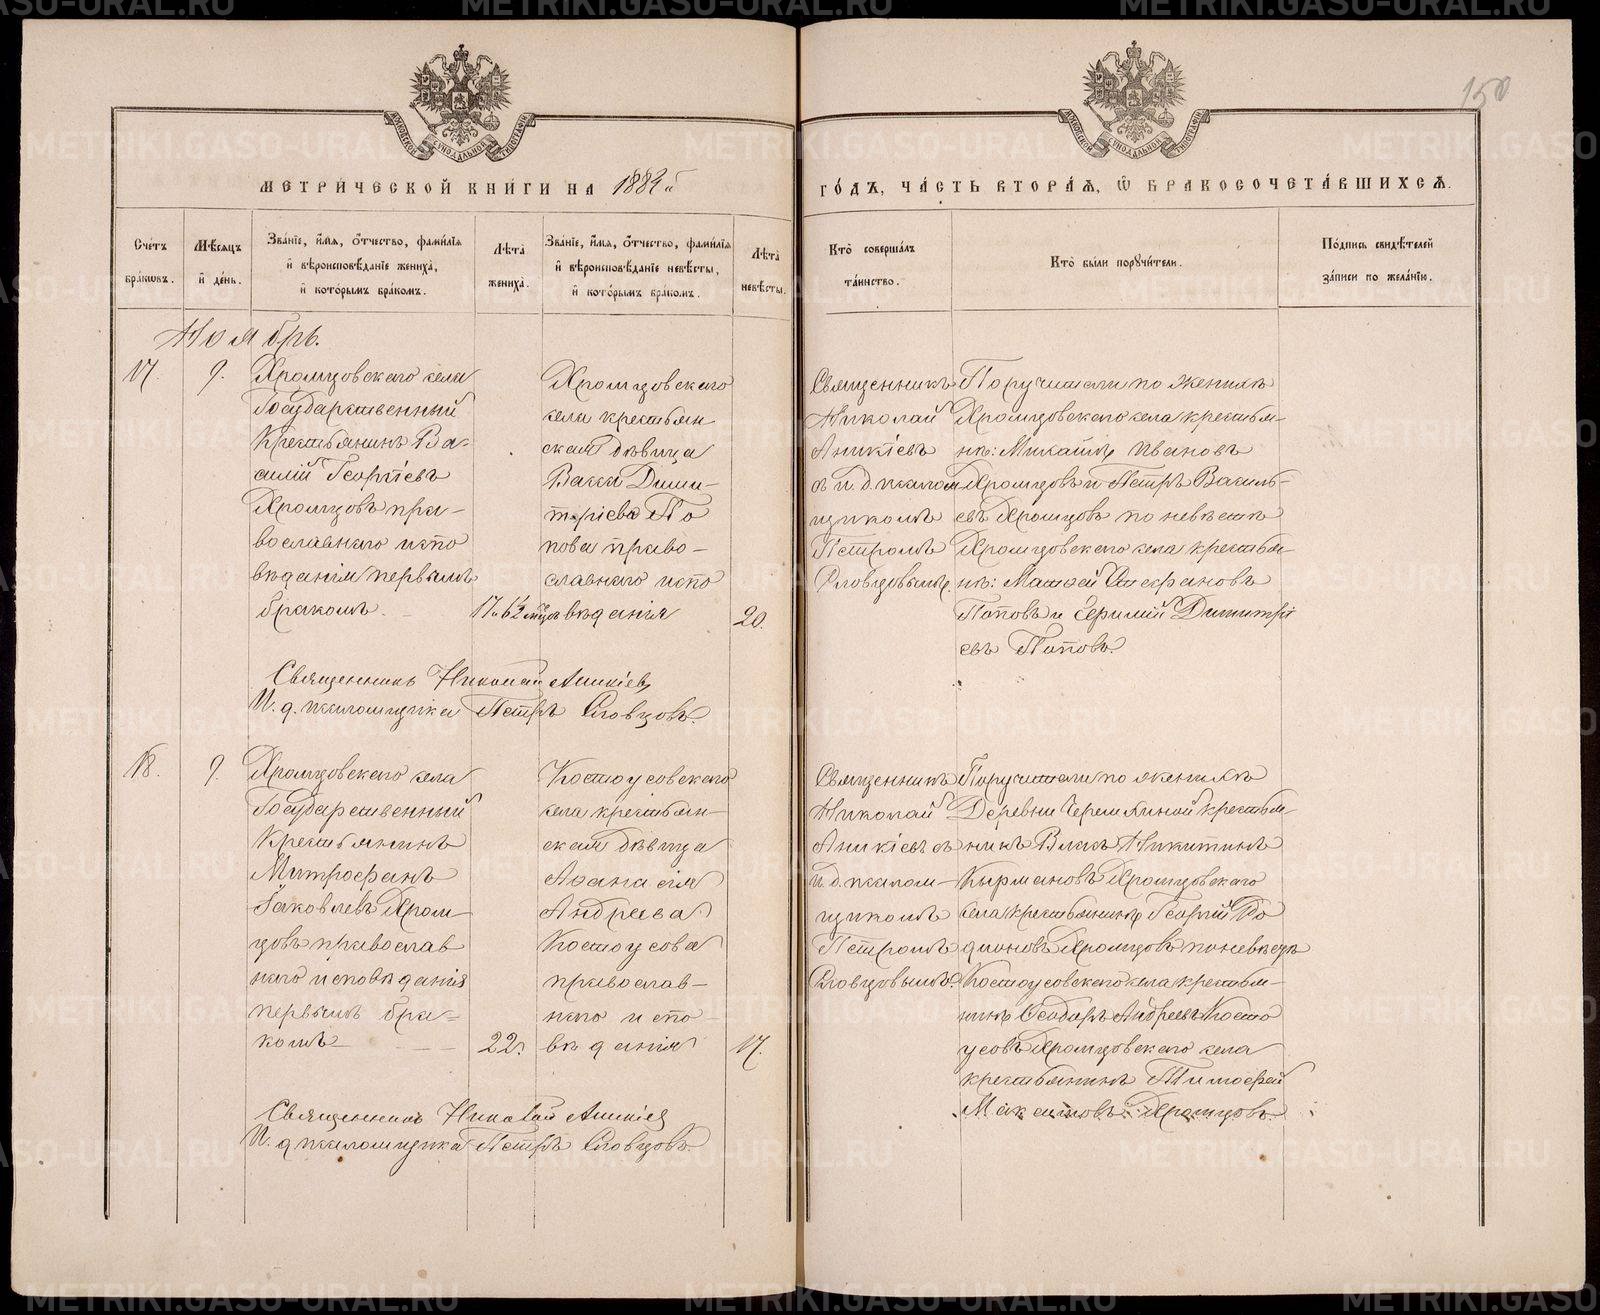 150
МЕТРИЧЕСКОЙ КНИГИ НА 1882й
ГОДЪ, ЧАСТЬ ВТОРАЯ, Ѿ БРАКОСОЧЕТАВШИХСЯ.
Счетъ браковъ.
Мѣсяцъ и день.
Званіе, имя, отчество, фамилія и вѣроисповѣданіе жениха, и которымъ бракомъ.
Лѣта жениха.
Званіе, имя, отчество, фамилія и вѣроисповѣданіе невѣсты, и которымъ бракомъ.
Лѣта невѣсты.
Кто совершалъ таинство.
Кто были поручители.
Подпись свидѣтелей записи по желанію.
Ноябрь.
17.
9.
Хромцовскаго села
Государственный
Крестьянинъ Ва-
силій Георгіевъ
Хромцовъ пра-
вославнаго испо
вѣданія первымъ
бракомъ.
17 и 6½ мцовъ
Хромцовскаго
села крестьян
ская дѣвица
Васса Дими-
тріева По
пова право-
славнаго испо
вѣданія
20.
Священникъ
Николай
Аникіевъ
съ и. д. псалом
щикомъ
Петромъ
Словцовымъ.
Поручители по женихѣ
Хромцовскаго села крестья-
не: Михаилъ Ивановъ
Хромцовъ и Петръ Василь-
евъ Хромцовъ по невѣстѣ
Хромцовскаго села крестья-
не: Матѳей Стефановъ
Поповъ и Ефимій Димитрі
евъ Поповъ.
Священникъ Николай Аникіевъ
И. д. псаломщика Петръ Словцовъ.
18.
9.
Хромцовскаго села
Государственный
Крестьянинъ
Митрофанъ
Іаковлевъ Хром-
цовъ православ
наго исповѣданія
первымъ бра-
комъ
22.
Костоусовскаго
села крестьян-
ская дѣвица
Аѳанасія
Андреева
Костоусова
православ-
наго испо-
вѣданія
17.
Священникъ
Николай
Аникіевъ съ
и. д. псалом-
щикомъ
Петромъ
Словцовымъ.
Поручители по женихѣ
Деревни Черемлиной крестья-
нинъ Никитинъ
Кырмановъ Хромцовскаго
села крестьянинъ Георгій Ро
діоновъ Хромцовъ по невѣстѣ
Костоусовскаго села крестья-
нинъ Ѳеодоръ Андреевъ Косто
усовъ Хромцовскаго села
крестьянинъ Тимоѳей
Максимовъ Хромцовъ.
Священникъ Николай Аникіевъ
И. д. псаломщика Петръ Словцовъ.
METRIKI.GASO-URAL.RU